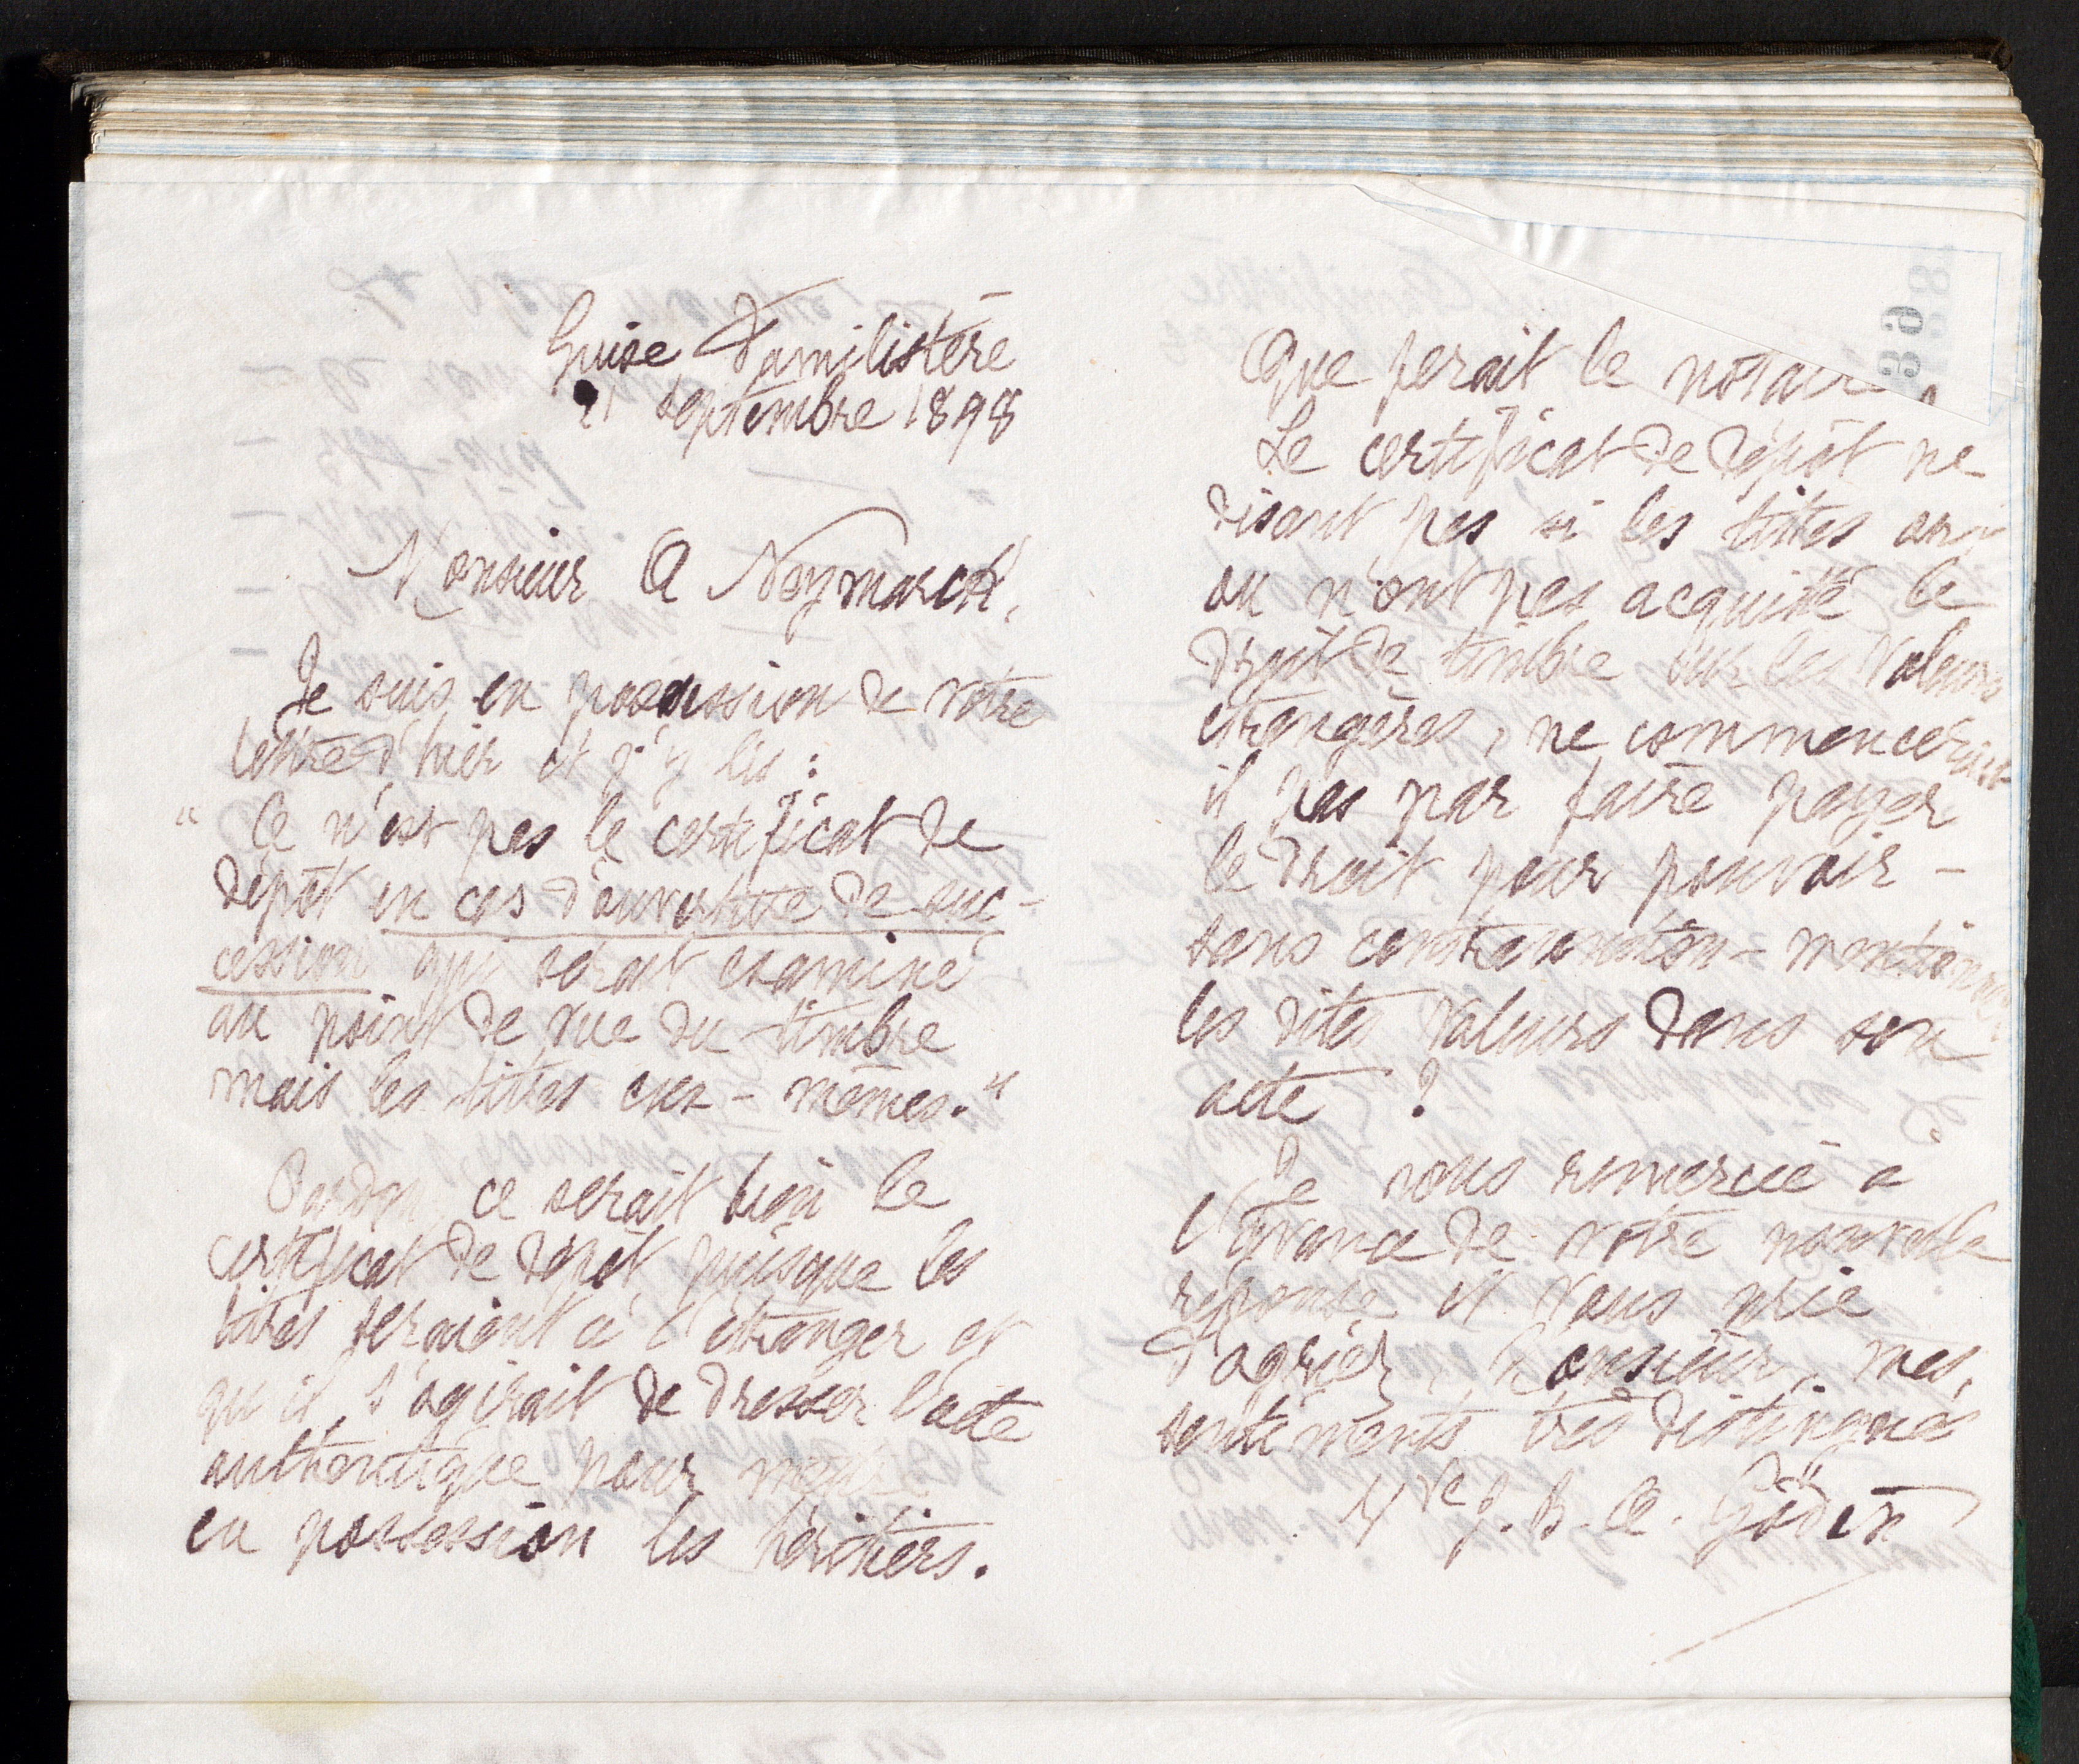 Guise Familistère
21 septembre 1898
Monsieur A Neymarck,
Je suis en possession de votre
lettre d'hier et j'y lis :
" Ce n'est pas le certificat de
dépôt en cas d'ouverture de suc-
cession qui serait examiné
au point de vue du timbre
mais les titres eux-mêmes."
Pardon, ce serait bien le
certificat de dépôt, puisque les
titres seraient à l'étranger et
qu'il s'agirait de dresser l'acte
authentique pour mettre
en possession les héritiers.
Que ferait le notaire
Le certificat de dépôt ne
disant pas si les titres ont
ou n'ont pas acquitté le
droit de timbre sur les valeurs
étrangères, ne commencerait
il pas par faire payer
le droit pour pouvoir -
sans contravention - mentionner
les dites valeurs dans son
acte ?
Je vous remercie à
l'avance de votre nouvelle
réponse et vous prie
d'agréer, Monsieur, mes
sentiments très distingués
Vve J. B. A. Godin
59